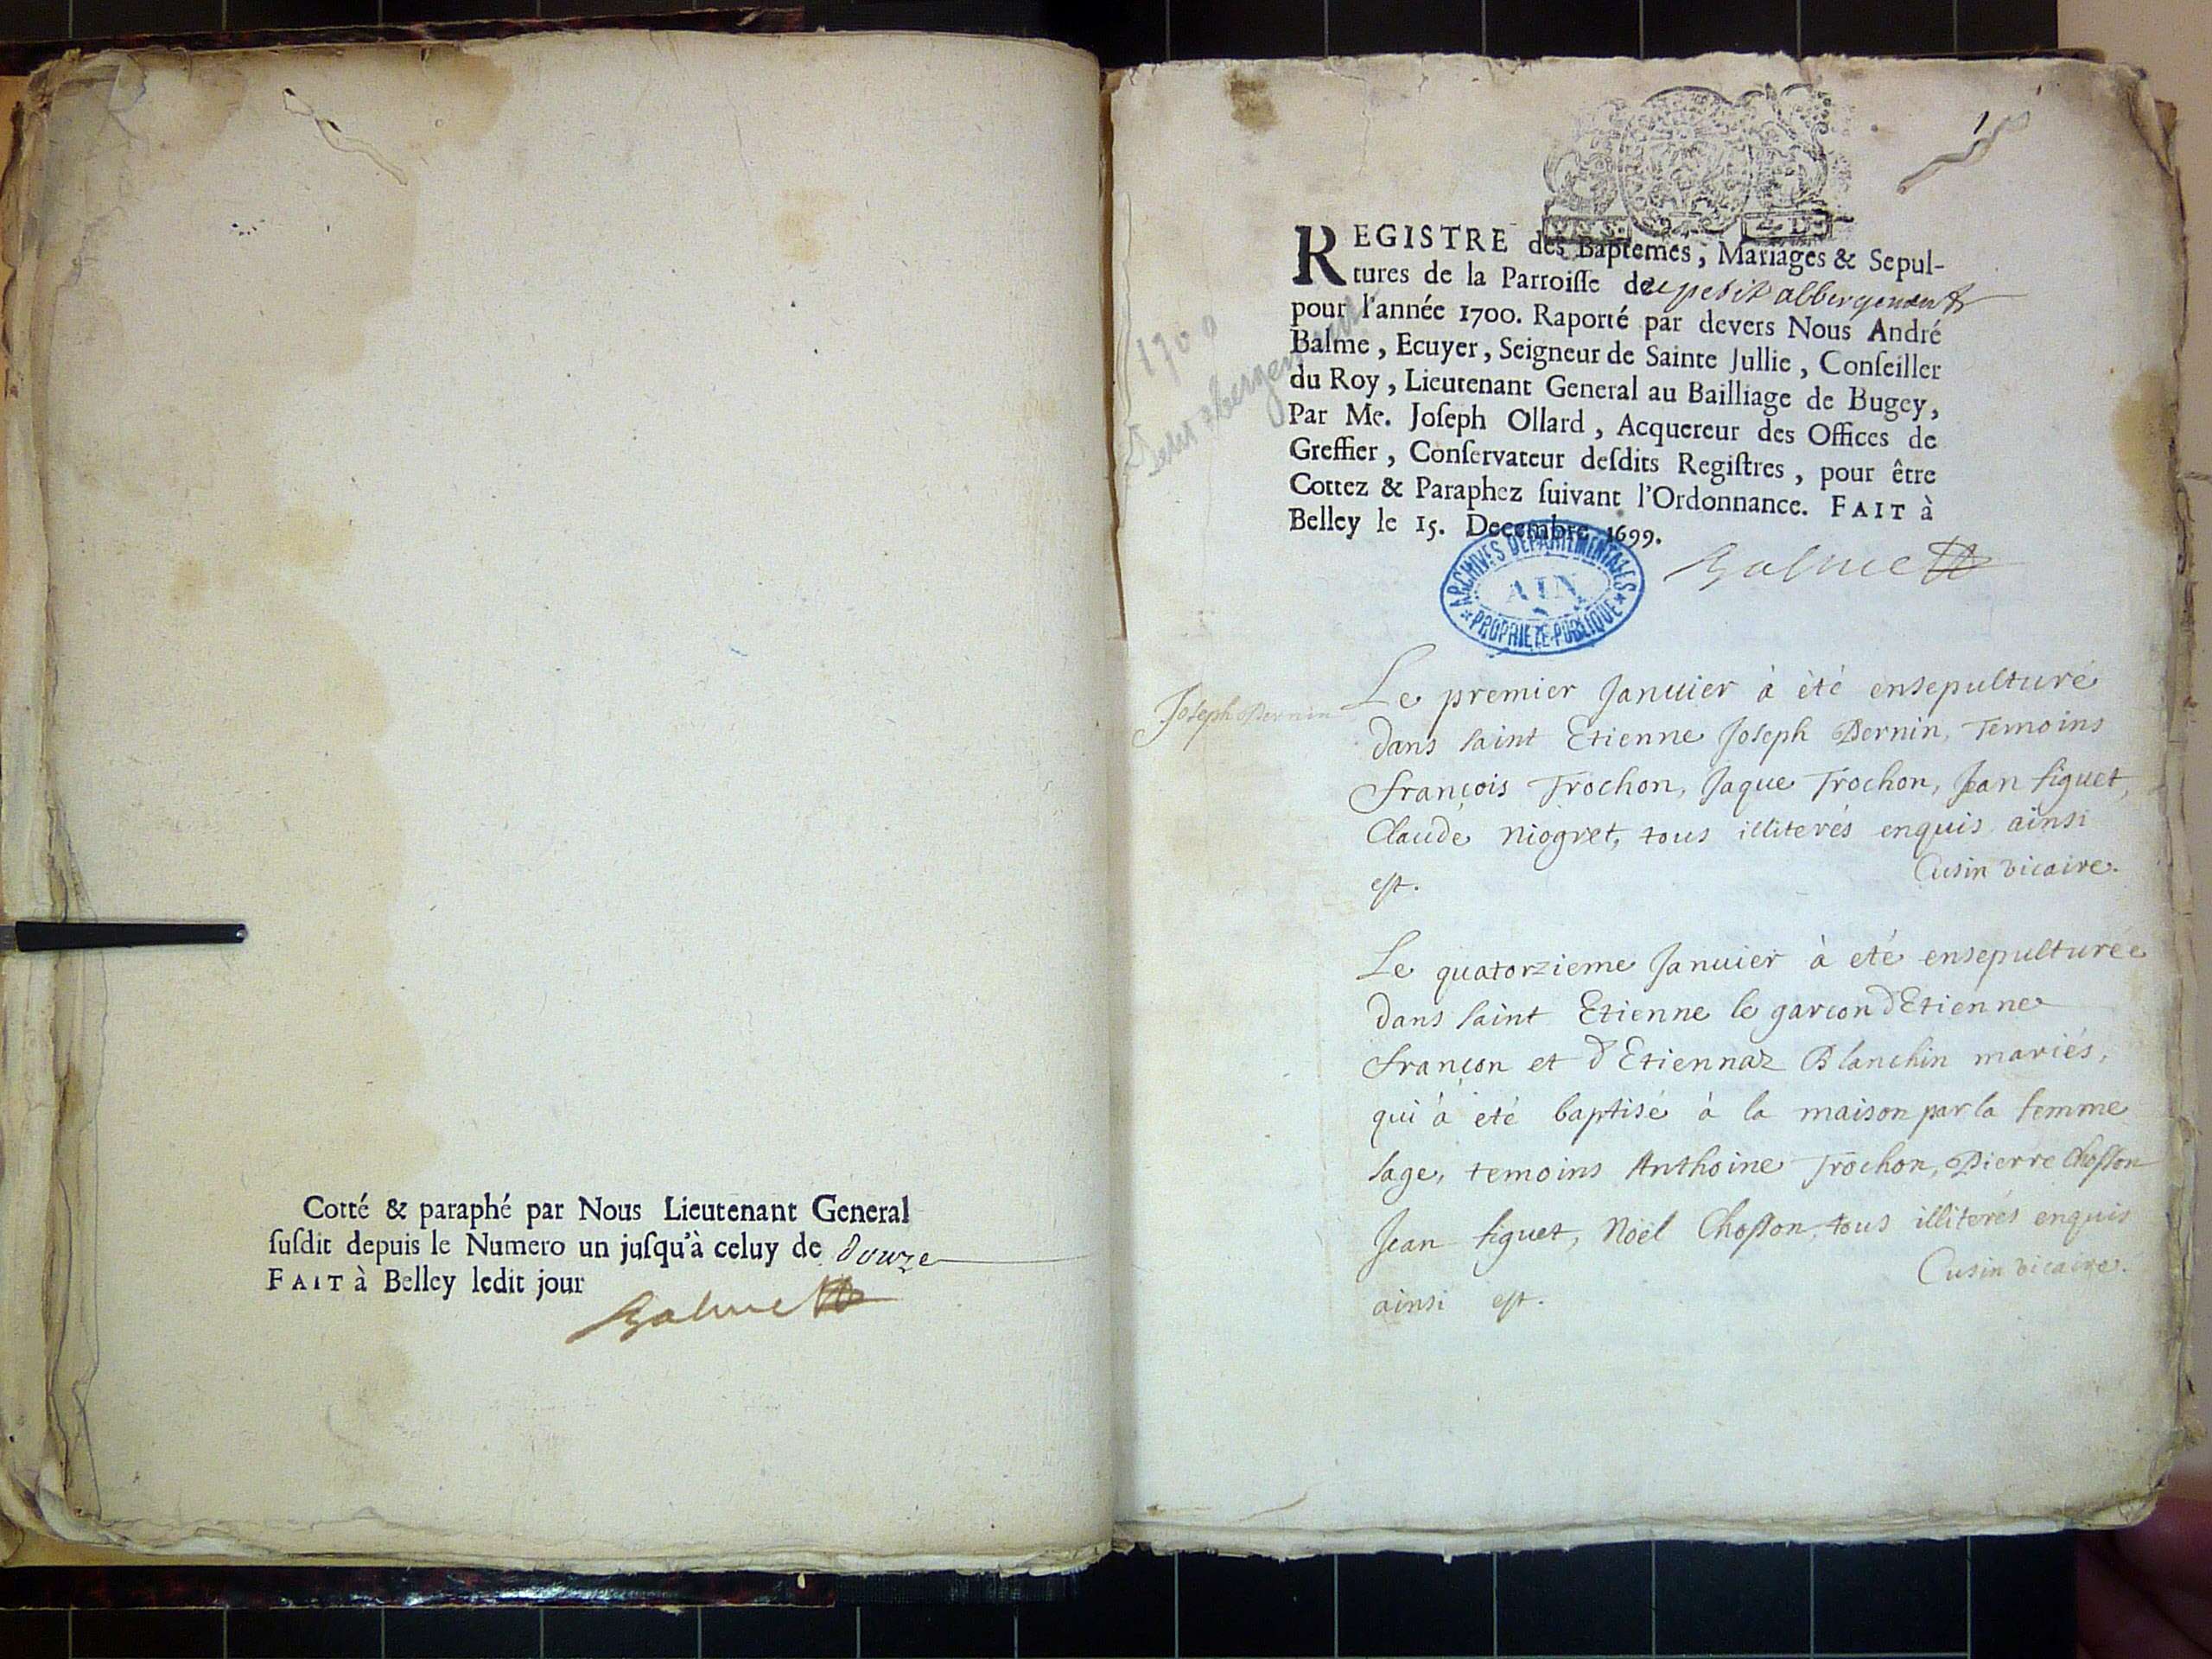 Cotté & paraphé par Nous Lieutenant General
ſuſdit depuis le Numero un juſqu'à celuy de douze
FAIT à Belley ledit jour
Balme
1
REGISTRE des Baptemes, Mariages & Sepul-
tures de la Parroiſſe de petit abbergement
pour l'année 1700. Raporté par devers Nous André
Balme, Ecuyer, Seigneur de Sainte Jullie, Conſeiller
du Roy, Lieutenant General au Bailliage de Bugey,
Par Me. Joſeph Ollard, Acquereur des Offices de
Greffier, Conſervateur deſdits Regiſtres, pour être
Cottez & Paraphez ſuivant l'Ordonnance. FAIT à
Belley le 15. Decembre 1699.
Balme
1700
ARCHIVES DEPARTEMENTALES
AIN
PROPRIETE PUBLIQUE
Joseph Bernin
Le premier Januier à été ensepulturé
dans saint Etienne Joseph Bernin, Temoins
François Trochon, Jaque Trochon, Jean figuet,
Claude Niogret, tous illiterés enquis ainsi
est.
Cusin vicaire.
Le quatorzieme Januier à eté ensepulturée
dans saint Etienne le garcon d'Etienne
françon et d'Etiennaz Blanchin mariés,
qui à eté baptisé à la maison par la femme
sage, temoins Anthoine Trochon, Pierre Chosson
Jean figuet, Noël Chosson, tous illiterés enquis
ainsi est.
Cusin vicaire.